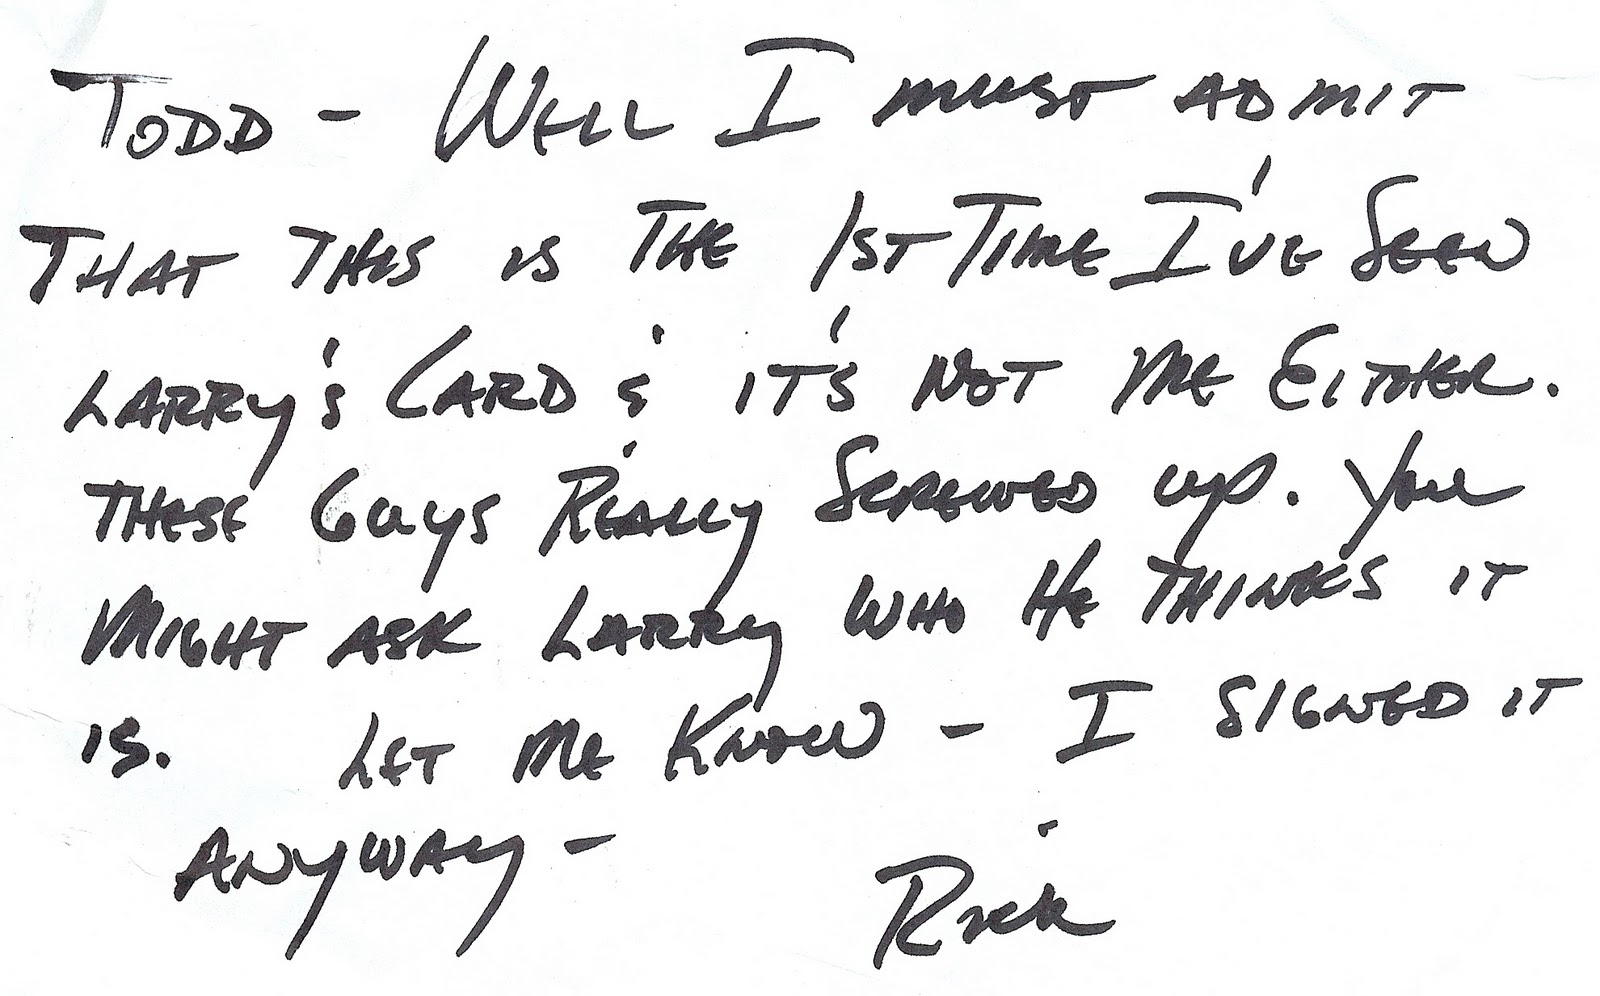 TODD - WELL I MUST ADMIT
THAT THIS IS THE 1ST TIME I'VE SEEN
LARRY'S CARD & IT'S NOT ME EITHER.
THESE GUYS REALLY SCREWED UP. YOU
MIGHT ASK LARRY WHO HE THINKS IT
IS. LET ME KNOW - I SIGNED IT
ANYWAY -
Rick